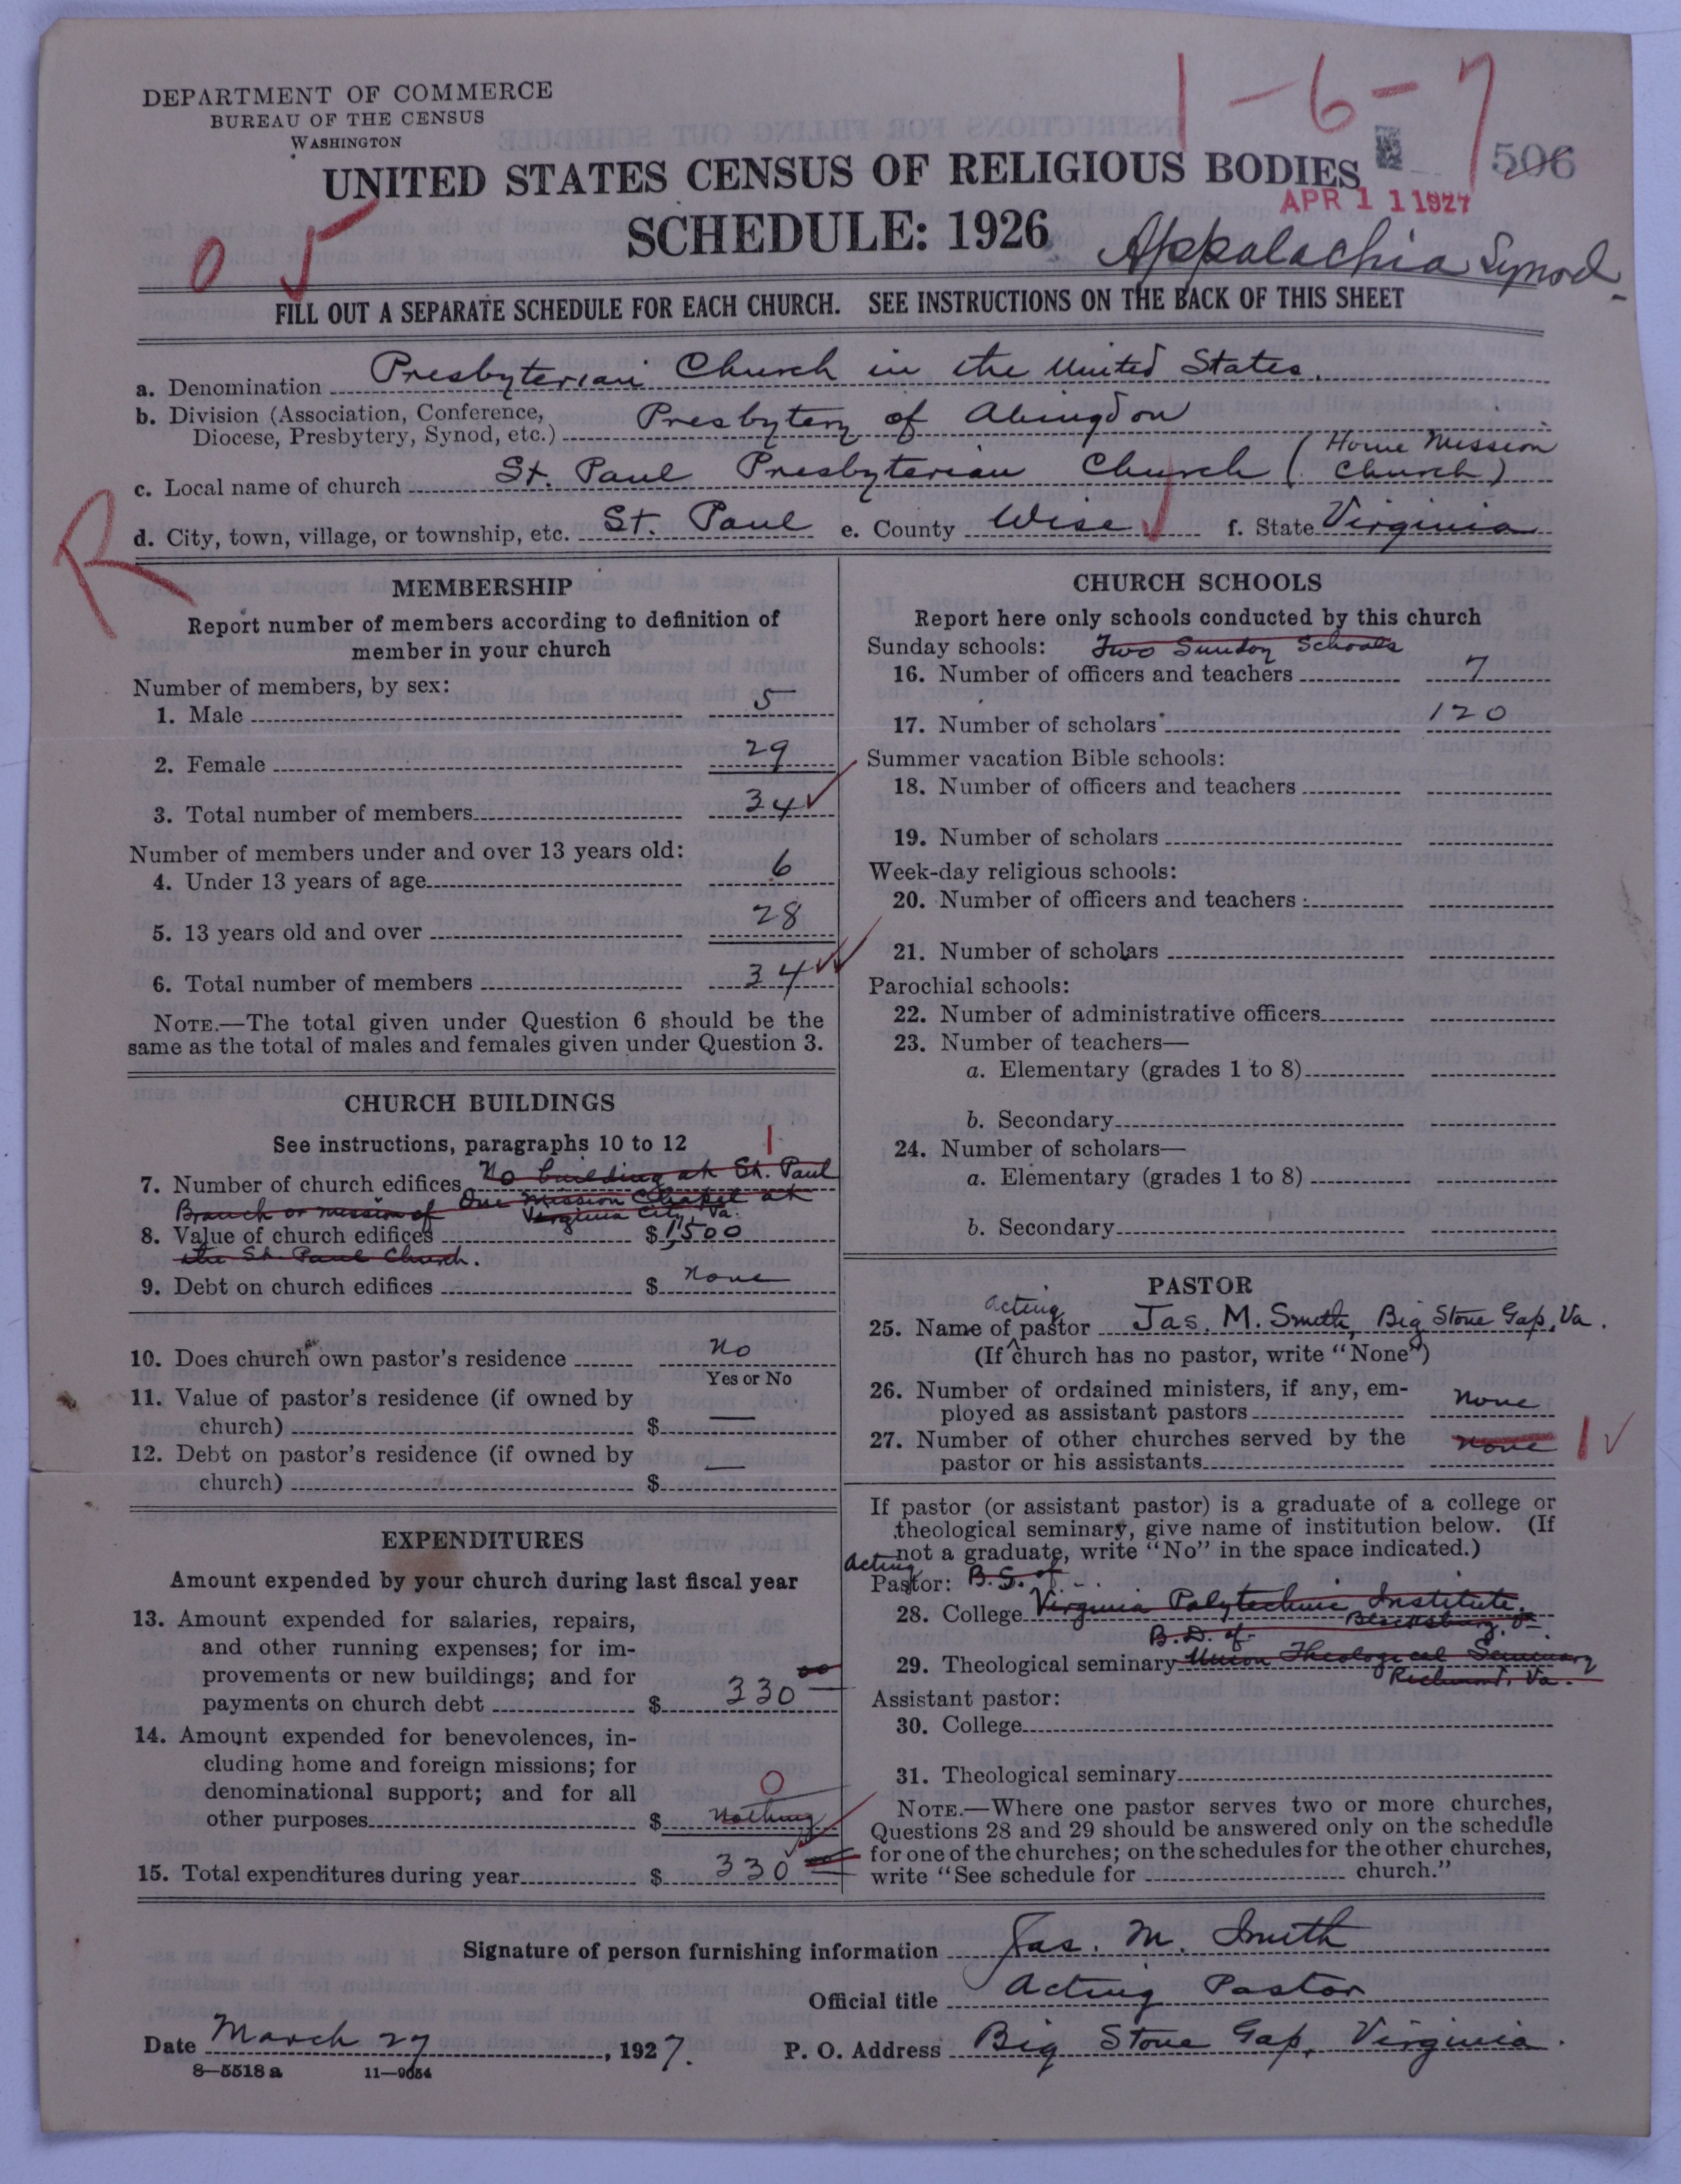 1-6-7
DEPARTMENT OF COMMERCE
BUREAU OF THE CENSUS
WASHINGTON
506
UNITED STATES CENSUS OF RELIGIOUS BODIES
APR 11 1927
SCHEDULE: 1926
Appalachia Synod
0 5
FILL OUT A SEPARATE SCHEDULE FOR EACH CHURCH. SEE INSTRUCTIONS ON THE BACK OF THIS SHEET
a. Denomination Presbyterian Church in the United States.
b. Division (Association, Conference, Diocese, Presbytery, Synod, etc.) Presbytery of Abingdon
c. Local name of church St. Paul Presbyterian Church (Home Mission Church)
R
d. City, town, village, or township, etc. St. Paul e. County Wise f. State Virginia
MEMBERSHIP
Report number of members according to definition of
member in your church
Number of members, by sex:
1. Male 5
2. Female 29
3. Total number of members 34
Number of members under and over 13 years old:
4. Under 13 years of age 6
5. 13 years old and over 28
6. Total number of members 34
NOTE.—The total given under Question 6 should be the
same as the total of males and females given under Question 3.
CHURCH BUILDINGS
See instructions, paragraphs 10 to 12
1
7. Number of church edifices No building at St. Paul
One Mission Chapel at
Branch or mission of Virginia City, Va.
8. Value of church edifices $1,500
the St. Paul Church.
9. Debt on church edifices $ none
10. Does church own pastor's residence No
Yes or No
11. Value of pastor's residence (if owned by
church) $ —
12. Debt on pastor's residence (if owned by
church) $ —
EXPENDITURES
Amount expended by your church during last fiscal year
13. Amount expended for salaries, repairs,
and other running expenses; for im-
provements or new buildings; and for
payments on church debt $ 330 00
14. Amount expended for benevolences, in-
cluding home and foreign missions; for
denominational support; and for all
0
other purposes $ Nothing
15. Total expenditures during year $ 330 00
CHURCH SCHOOLS
Report here only schools conducted by this church
Sunday schools: Two Sunday Schools
16. Number of officers and teachers 7
17. Number of scholars 120
Summer vacation Bible schools:
18. Number of officers and teachers
19. Number of scholars
Week-day religious schools:
20. Number of officers and teachers
21. Number of scholars
Parochial schools:
22. Number of administrative officers
23. Number of teachers—
a. Elementary (grades 1 to 8)
b. Secondary
24. Number of scholars—
a. Elementary (grades 1 to 8)
b. Secondary
PASTOR
acting
25. Name of pastor Jas. M. Smith, Big Stone Gap, Va.
(If church has no pastor, write "None")
26. Number of ordained ministers, if any, em-
ployed as assistant pastors none
27. Number of other churches served by the none 1
pastor or his assistants
If pastor (or assistant pastor) is a graduate of a college or
theological seminary, give name of institution below. (If
not a graduate, write "No" in the space indicated.)
Acting
Pastor: B.S. of
28. College Virginia Polytechnic Institute,
Blacksburg, Va
B.D. of
29. Theological seminary Union Theological Seminary
Richmond, Va.
Assistant pastor:
30. College
31. Theological seminary
NOTE.—Where one pastor serves two or more churches,
Questions 28 and 29 should be answered only on the schedule
for one of the churches; on the schedules for the other churches,
write "See schedule for church."
Signature of person furnishing information Jas. M. Smith
Official title Acting Pastor
Date March 27, 1927. P. O. Address Big Stone Gap, Virginia.
8—5518 a 11—9054